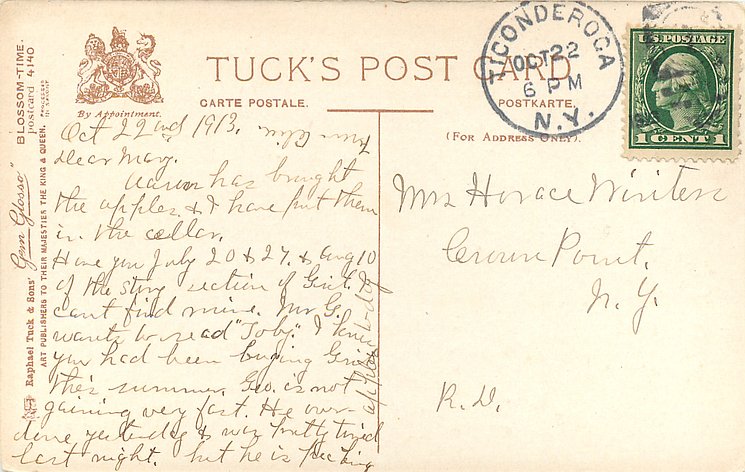 TUCK'S POST CARD
CARTE POSTALE.
POSTKARTE.
(FOR ADDRESS ONLY).
By Appointment.
BLOSSOM-TIME.
postcard 4140
"Gem Glosso"
Raphael Tuck & Sons'
ART PUBLISHERS TO THEIR MAJESTIES THE KING & QUEEN.
TICONDEROGA
OCT 22
6 PM
N.Y.
U.S. POSTAGE
1 CENT 1
Oct 22nd 1913.
Dear Mary.
Aaron has brought
the apples & I have put them
in the cellar.
Have you July 20 & 27. & Aug 10
of the story section of Grit. I
can't find mine. Mr G.
wants to read "Toby." I knew
you had been buying Grit
this summer. Geo. is not
gaining very fast. He over-
done yesterday & was pretty tired
last night. but he is picking
apples to-day
Mrs Horace Winters
Crown Point.
N. Y.
R. D.